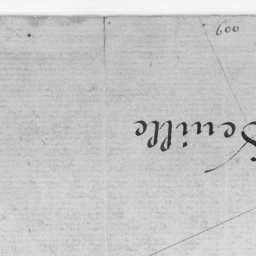 600
Seuille